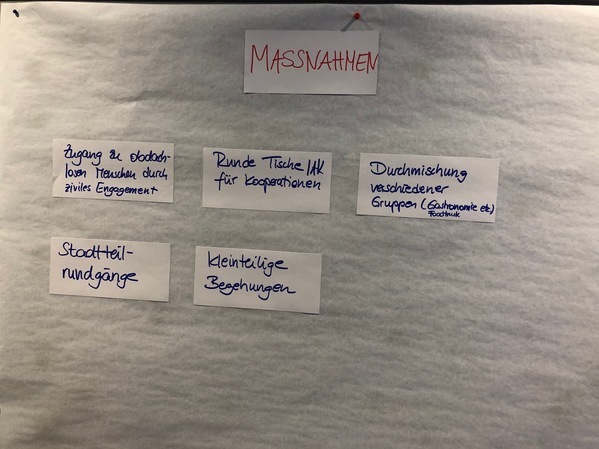 MASSNAHMEN
Zugang zu obdach-
losen Menschen durch
ziviles Engagement
Runde Tische / AK
für Kooperationen
Durchmischung
verschiedener
Gruppen (Gastronomie etc)
Foodtruck
Stadtteil-
rundgänge
Kleinteilige
Begehungen